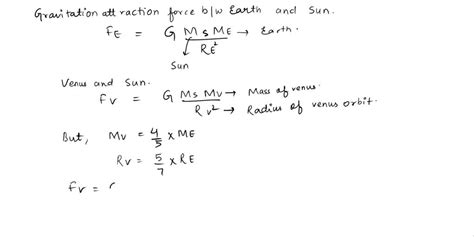 Gravitation attraction force b/w Earth and Sun.
FE = G Ms ME → Earth.
RE²
Sun
Venus and Sun.
Fv = G Ms Mv → Mass of venus
Rv² → Radius of venus orbit.
But, Mv = 4/5 × ME
Rv = 5/7 × RE
Fv = (